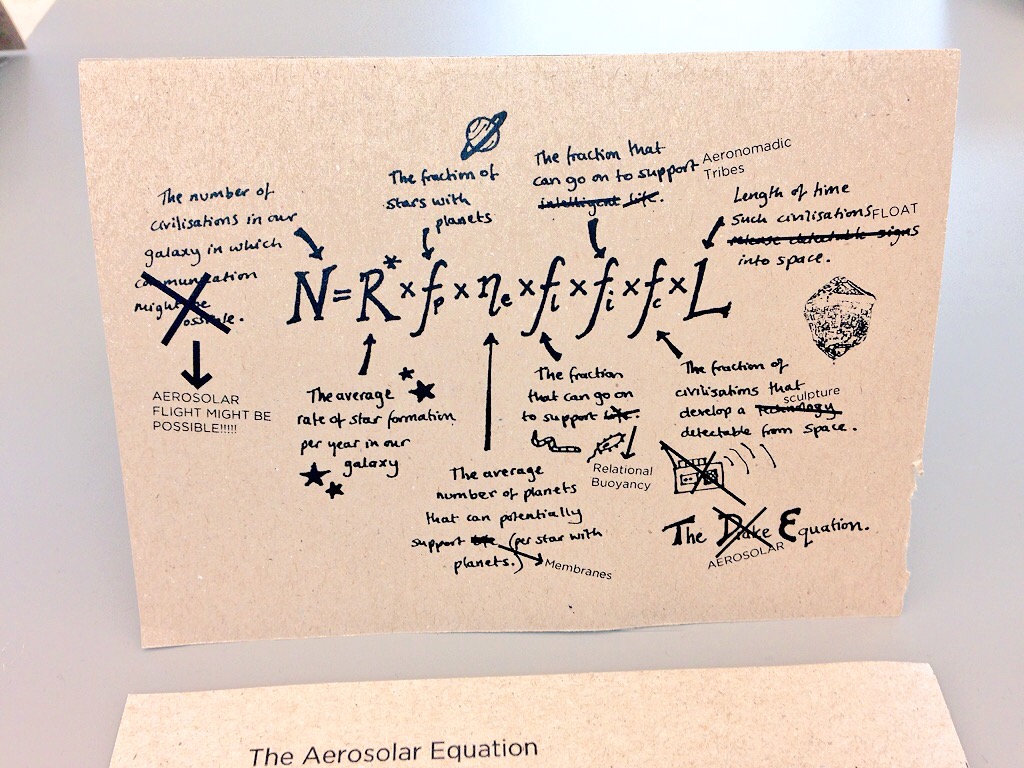 The number of
civilisations in our
galaxy in which
communication
might be
possible.
AEROSOLAR
FLIGHT MIGHT BE
POSSIBLE!!!!!
The fraction of
stars with
planets
The fraction that
can go on to support Aeronomadic
Tribes
intelligent life.
Length of time
such civilisations FLOAT
release detectable signs
into space.
N=R*×fp×ηe×fl×fi×fc×L
The average
rate of star formation
per year in our
galaxy
The average
number of planets
that can potentially
support life (per star with
planets.)
Membranes
The fraction
that can go on
to support life.
Relational
Buoyancy
The fraction of
civilisations that
sculpture
develop a technology
detectable from space.
The Drake Equation.
AEROSOLAR
The Aerosolar Equation